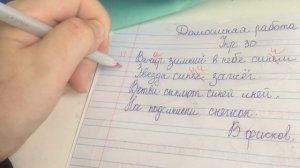 Домашняя работа
Упр. 30
Вечер зимний в небе синем
Звёзды синие зажёг
Ветви сыплют синий иней
На подсиненный снежок.
В. Фирсов.